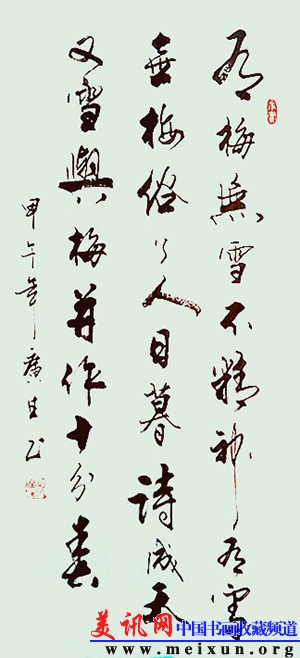 有梅無雪不精神有雪
無梅俗了人日暮詩成天
又雪與梅并作十分春
甲午年廣
美讯网中国书画收藏频道
www.meixun.org